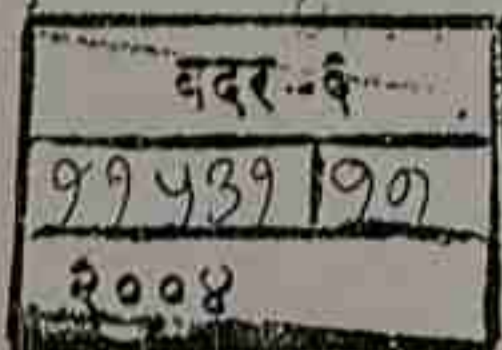 बदर-६
११५३१ | १७
२००४